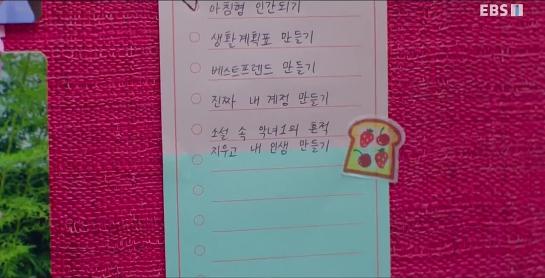 EBS1
아침형 인간되기
생활계획표 만들기
베스트프렌드 만들기
진짜 내 계정 만들기
소설 속 악녀1의 흔적
지우고 내 인생 만들기